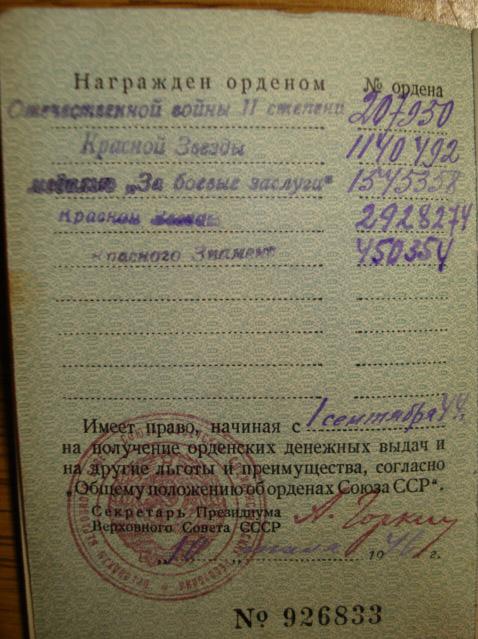 Награжден орденом № ордена
Отечественной войны II степени 207950
Красной Звезды 1140492
медалью „За боевые заслуги“ 1545358
Красной Звезды 2928274
Красного Знамени 450354
Имеет право, начиная с 1 сентября 44
на получение орденских денежных выдач и
на другие льготы и преимущества, согласно
„Общему положению об орденах Союза ССР“.
Секретарь Президиума
Верховного Совета СССР А. Горкин
„10“ 19 г.
№ 926833